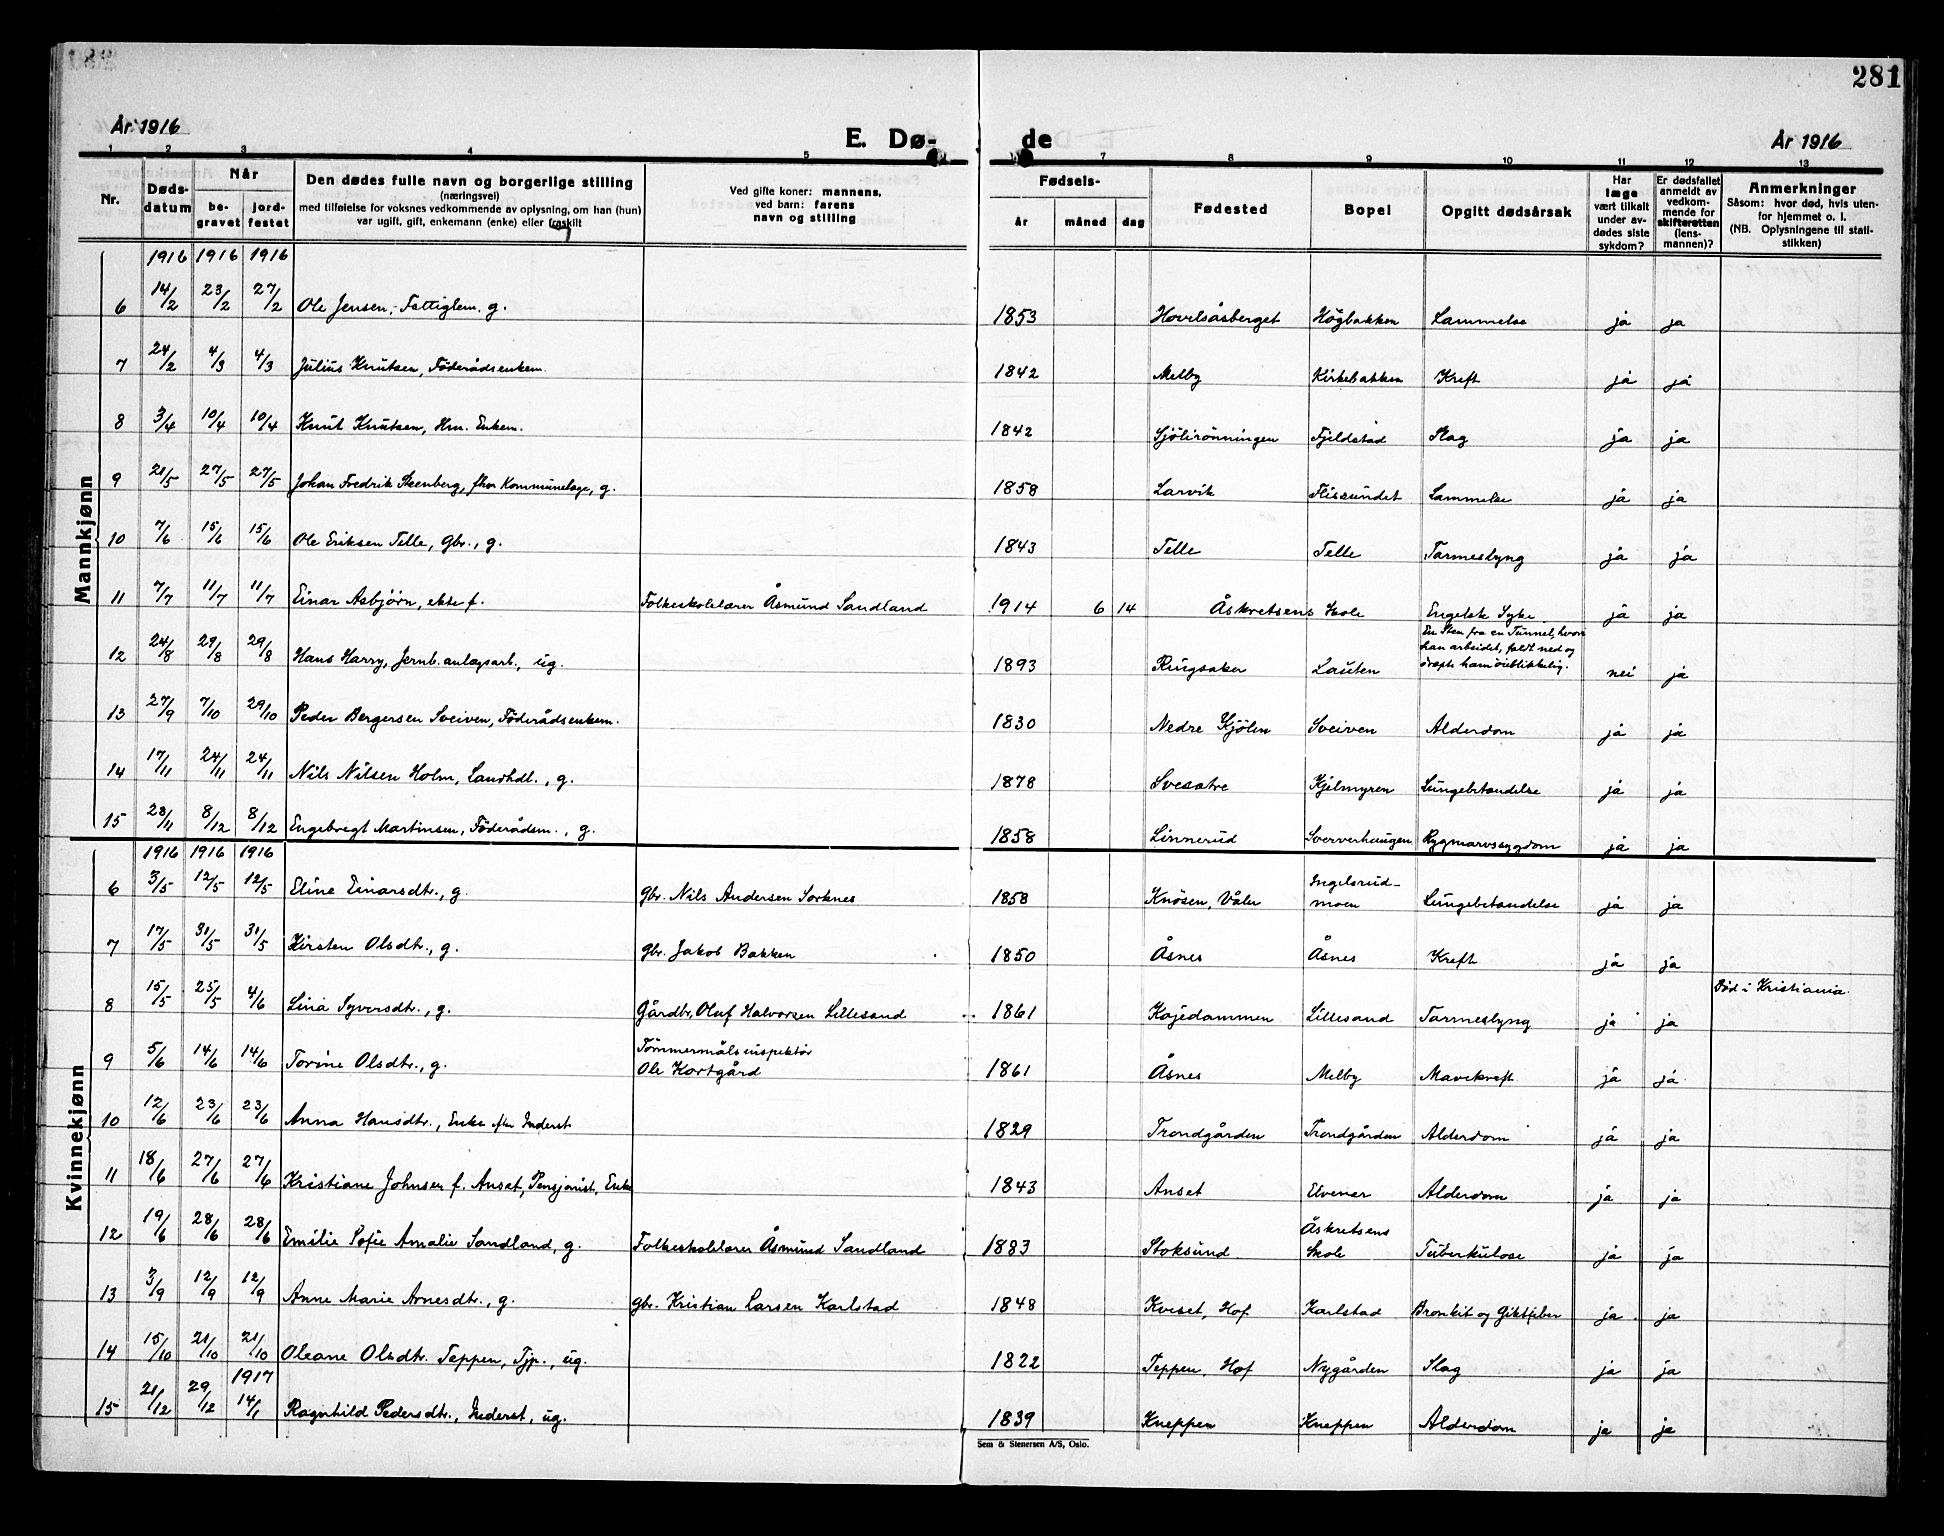 281
År 1916
E. Dø-
de
År 1916
1 2 3 4 5 7 8 9 10 11 12 13
Nr.
Døds-
datum
Når
be-
gravet
jord-
festet
Den dødes fulle navn og borgerlige stilling
(næringsvei)
med tilføielse for voksnes vedkommende av oplysning, om han (hun)
var ugift, gift, enkemann (enke) eller fraskilt
Ved gifte koner: mannens,
ved barn: farens
navn og stilling
Fødsels-
år måned dag
Fødested
Bopel
Opgitt dødsårsak
Har
læge
vært tilkalt
under av-
dødes siste
sykdom?
Er dødsfallet
anmeldt av
vedkom-
mende for
skifteretten
(lens-
mannen)?
Anmerkninger
Såsom: hvor død, hvis uten-
for hjemmet o. l.
(NB. Oplysningene til stati-
stikken)
Mannkjønn
1916 1916 1916
6 14/2 23/2 27/2 Ole Jensen, Fattiglem. g. 1853 Hovelsåsberget Högbakken Lammelse ja ja
7 24/2 4/3 4/3 Julius Knutsen, Föderådsenkem. 1842 Melby Kirkebakken Kreft ja ja
8 3/4 10/4 10/4 Knut Knutsen, Hm. Enkem. 1842 Sjölirönningen Fjeldstad Slag ja ja
9 21/5 27/5 27/5 Johan Fredrik Steenberg, fhv Kommunelæge, g. 1858 Larvik Flissundet Lammelse ja ja
10 7/6 15/6 15/6 Ole Eriksen Telle, Gbr., g. 1843 Telle Telle Tarmeslyng ja ja
11 7/7 11/7 11/7 Einar Asbjørn, ekte f. Folkeskolelærer Åsmund Sandland 1914 6 14 Åskretsens Skole Engelsk Syke ja ja
12 24/8 29/8 29/8 Hans Harry, Jernb.anlægsarb., ug. 1893 Ringsaker Lauten En Sten fra en Tunnel, hvori
han arbeidet, faldt ned og
dræpte ham öieblikkelig. nei ja
13 27/9 7/10 29/10 Peder Bergersen Sveiven, Föderådsenkem. 1830 Nedre Kjölen Sveiven Alderdom ja ja
14 17/11 24/11 24/11 Nils Nilsen Holm, Landhdl., g. 1878 Svesatre Kjelmyren Lungebetændelse ja ja
15 28/11 8/12 8/12 Engebregt Martinsen, Föderådsm., g. 1858 Linnerud Sververhaugen Rygmarvssygdom ja ja
Kvinnekjønn
1916 1916 1916
6 3/5 12/5 12/5 Eline Einarsdtr., g. gbr. Nils Andersen Sorknes 1858 Knösen, Våler Ingelsrud-
moen Lungebetændelse ja ja
7 17/5 31/5 31/5 Kirsten Olsdtr., g. gbr. Jakob Bakken 1850 Åsnes Åsnes Kreft ja ja
8 15/5 25/5 4/6 Lina Syversdtr., g. Gårdbr, Oluf Halvorsen Lillesand 1861 Köjedammen Lillesand Tarmeslyng ja ja Död i Kristiania.
9 5/6 14/6 14/6 Torine Olsdtr., g. Tømmermålsinspektör
Ole Kortgård 1861 Åsnes Melby Mavekreft ja ja.
10 12/6 23/6 23/6 Anna Hansdtr., Enke efter Inderst 1829 Trondgården Trondgården Alderdom ja ja
11 18/6 27/6 27/6 Kristiane Johnsen f. Anset, Pensjonist, Enke 1843 Anset Elvenes Alderdom ja ja
12 19/6 28/6 28/6 Emilie Sofie Amalie Sandland, g. Folkeskolelærer Åsmund Sandland 1883 Stoksund Åskretsens
Skole Tuberkulose ja ja
13 3/9 12/9 12/9 Anne Marie Arnesdtr., g. gbr. Kristian Larsen Karlstad 1848 Kveset, Hof Karlstad Bronkit og Giktfeber ja ja
14 15/10 21/10 21/10 Oleane Olsdtr. Teppen, Tjp., ug. 1822 Teppen, Hof Nygården Slag ja ja
1917
15 21/12 29/12 14/1 Ragnhild Pedersdtr., Inderst, ug. 1839 Kneppen Kneppen Alderdom ja ja
Sem & Stenersen A/S, Oslo.